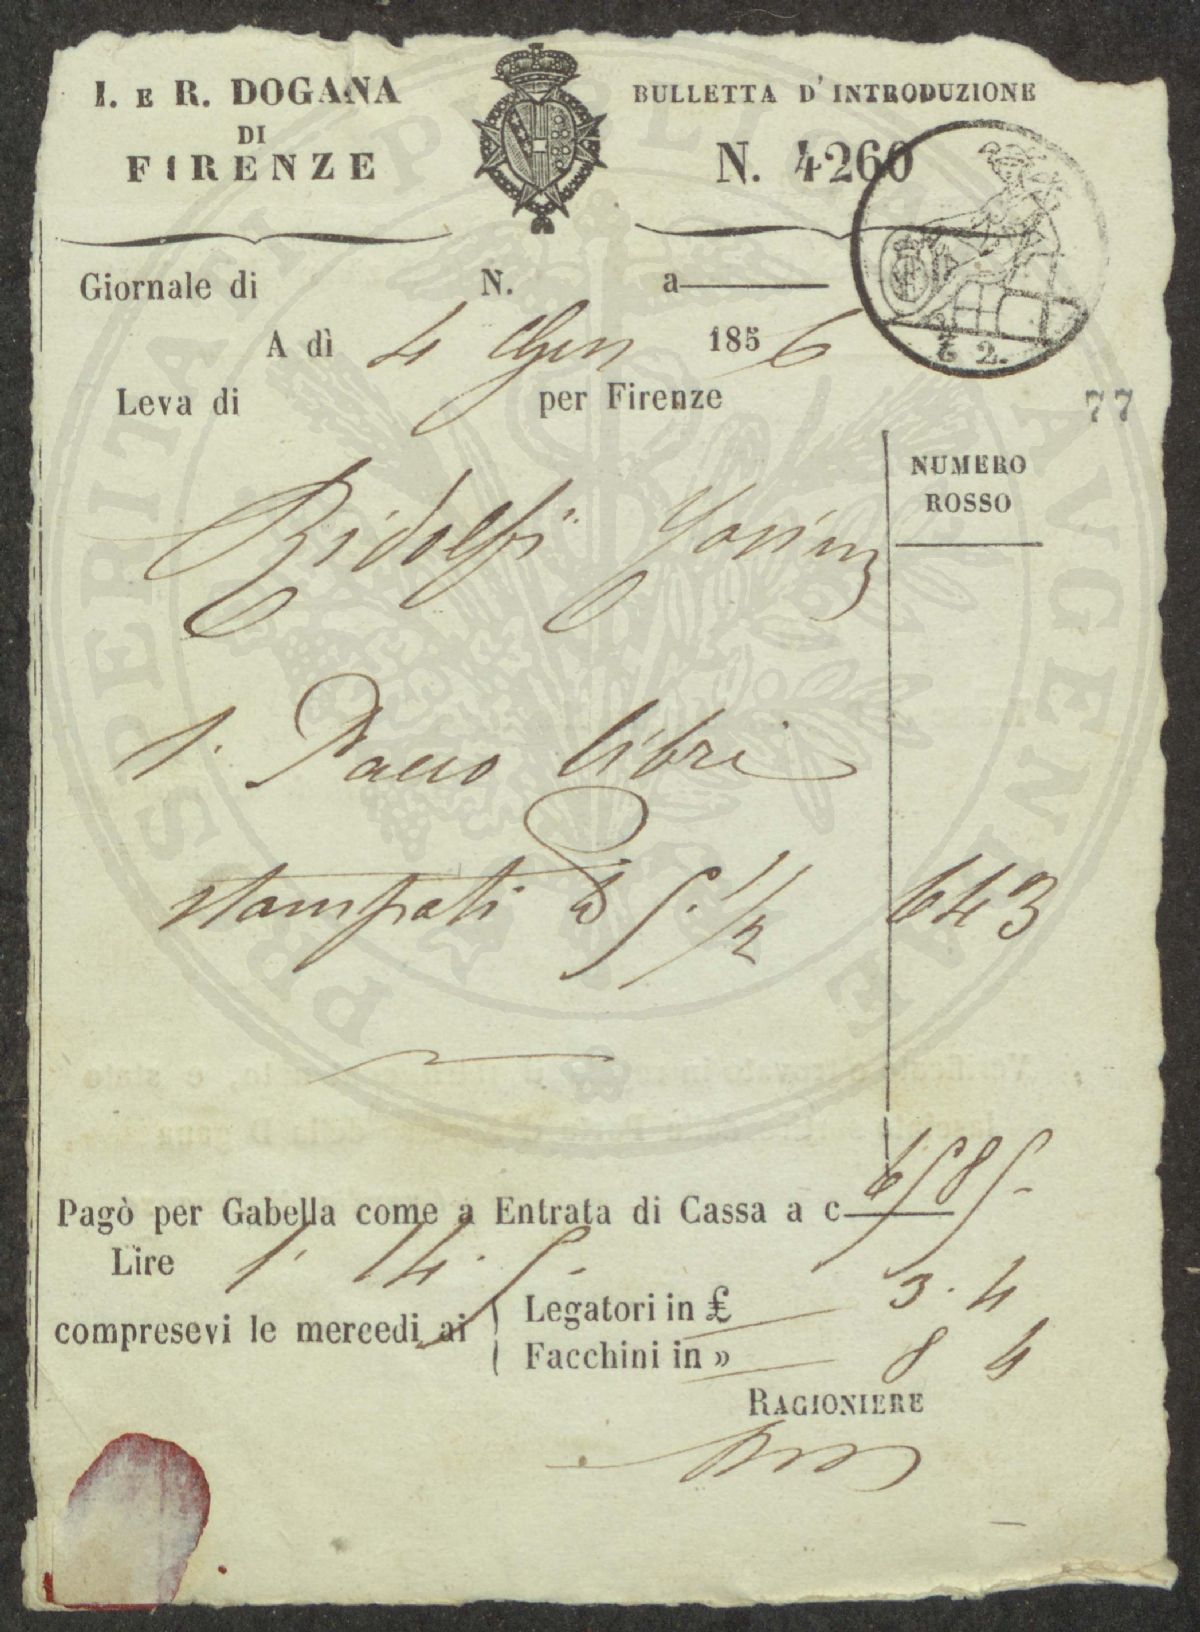 I. E R. DOGANA
DI
FIRENZE
BULLETTA D'INTRODUZIONE
N. 4260
Giornale di N. a
A dì 4 Gen 1856
2.
Leva di per Firenze
77
NUMERO
ROSSO
Ridolfi
1. Pacco libri
stampati 5. 1/2 643
Pagò per Gabella come a Entrata di Cassa a c
Lire 1. 14. 5.
compresevi le mercedi ai
Legatori in £ 3. 4
Facchini in » 8 4
RAGIONIERE
PROSPERITATI PVBLICAE AVGENDAE